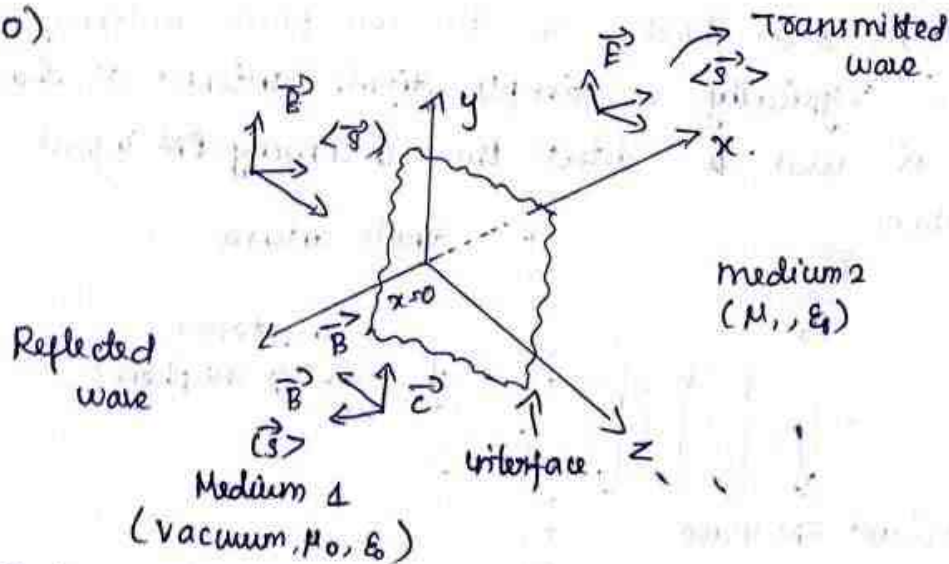 0)
Transmitted
wave
E
<S>
E
<S>
y
x
x=0
Medium 2
(μ₁, ε₁)
Reflected
wave
B
B
<S>
Z
interface
Medium 1
(Vacuum, μ₀, ε₀)